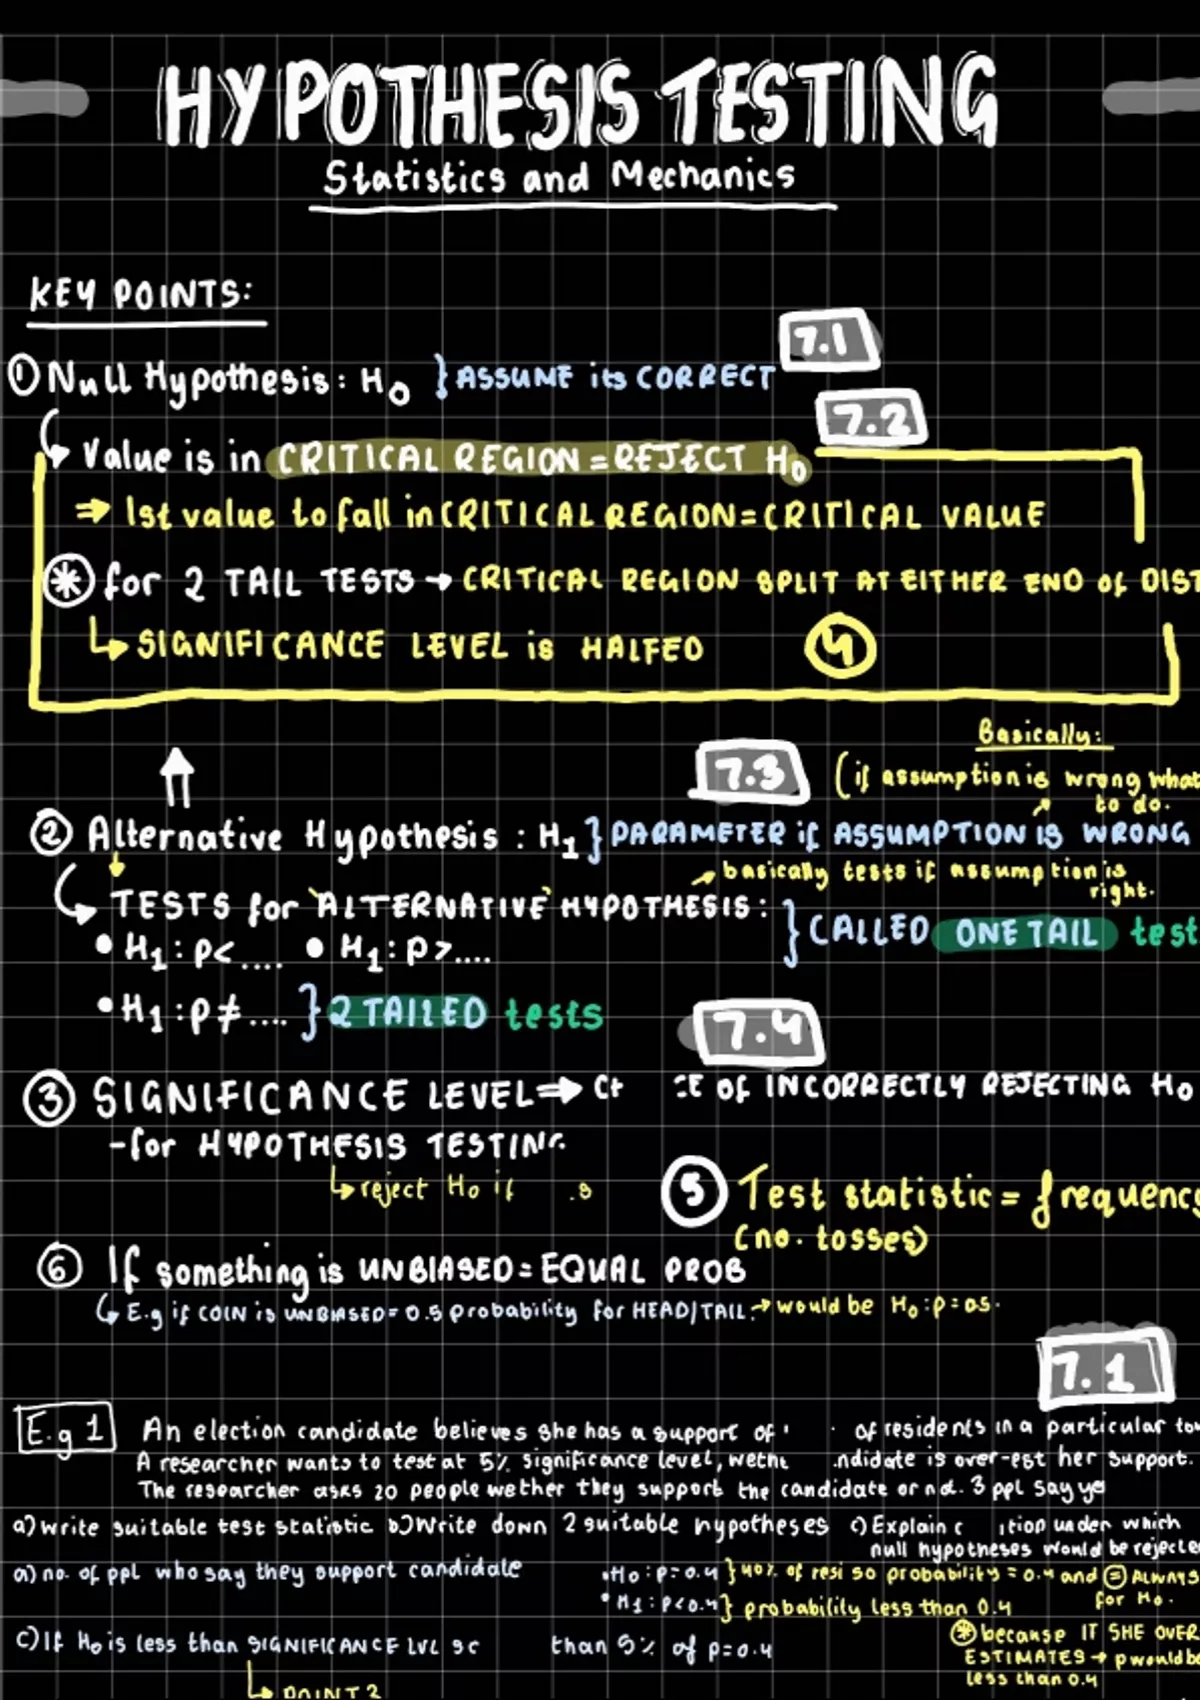 HYPOTHESIS TESTING
Statistics and Mechanics
KEY POINTS:
7.1
① Null Hypothesis: H0 } ASSUME its CORRECT
7.2
Value is in CRITICAL REGION = REJECT H0
⇒ 1st value to fall in CRITICAL REGION = CRITICAL VALUE
* for 2 TAIL TESTS → CRITICAL REGION SPLIT AT EITHER END of DIST
↳ SIGNIFICANCE LEVEL is HALFED ④
Basically:
7.3 (if assumption is wrong what
to do.
② Alternative Hypothesis : H1 } PARAMETER if ASSUMPTION IS WRONG
basically tests if assumption is
right.
TESTS for 'ALTERNATIVE' HYPOTHESIS:
} CALLED ONE TAIL test
• H1 : p< .... • H1 : p>....
• H1 : p≠ .... } 2 TAILED tests
7.4
③ SIGNIFICANCE LEVEL ⇒ OF INCORRECTLY REJECTING H0
-for HYPOTHESIS TESTING
↳ reject H0 if
⑤ Test statistic = frequency
(no. tosses)
⑥ If something is UNBIASED = EQUAL PROB
↳ E.g if COIN is UNBIASED = 0.5 probability for HEAD/TAIL. → would be H0 : p = 0.5.
7.1
E.g 1 An election candidate believes she has a support of of residents in a particular
A researcher wants to test at 5% significance level, is over-est her support.
The researcher asks 20 people wether they support the candidate or not. 3 ppl say
a) write suitable test statistic b) Write down 2 suitable hypotheses c) Explain under which
null hypotheses would be
a) no. of ppl who say they support candidate
• H0 : p = 0.4 } 40% of resi so probability = 0.4 and = ALWAYS
for H0.
• H1 : p<0.4 } probability less than 0.4
* because IT SHE OVER
ESTIMATES → p would be
less than 0.4
c) If H0 is less than SIGNIFICANCE LVL so than 5% of p=0.4
↳ POINT 3